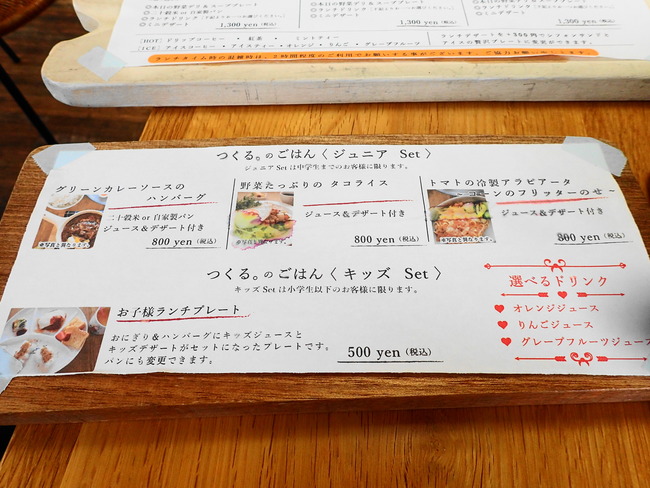 ◎本日の野菜デリ&スーププレート
◎二十穀米 or 自家製パン
◎ランチドリンク「下記よりお選びください」
◎ミニデザート
1,300 yen
1,300 yen
◎ミニデザート
1,300 yen
[HOT] ドリップコーヒー ・ 紅茶 ・ ミントティー
[ICE] アイスコーヒー ・ アイスティー ・ オレンジ ・ りんご ・ グレープフルーツ
ランチデザートを+300円でシフォンサンドと
アイスの贅沢プレートに変更ができます。
ランチタイム時の混雑時は、2時間程度のご利用でお願いする事がございます。ご協力お願い致します。
つくる。のごはん〈 ジュニア Set 〉
ジュニア Set は中学生までのお客様に限ります。
グリーンカレーソースの
ハンバーグ
二十穀米 or 自家製パン
ジュース&デザート付き
800 yen (税込)
※写真と異なります。
野菜たっぷりの タコライス
ジュース&デザート付き
800 yen (税込)
※写真と異なります。
トマトの冷製アラビアータ
～コーンのフリッターのせ～
ジュース&デザート付き
800 yen (税込)
※写真と異なります。
つくる。のごはん〈 キッズ Set 〉
キッズ Set は小学生以下のお客様に限ります。
お子様ランチプレート
おにぎり&ハンバーグにキッズジュースと
キッズデザートがセットになったプレートです。
パンにも変更できます。
500 yen (税込)
選べるドリンク
♥ オレンジジュース
♥ りんごジュース
♥ グレープフルーツジュース